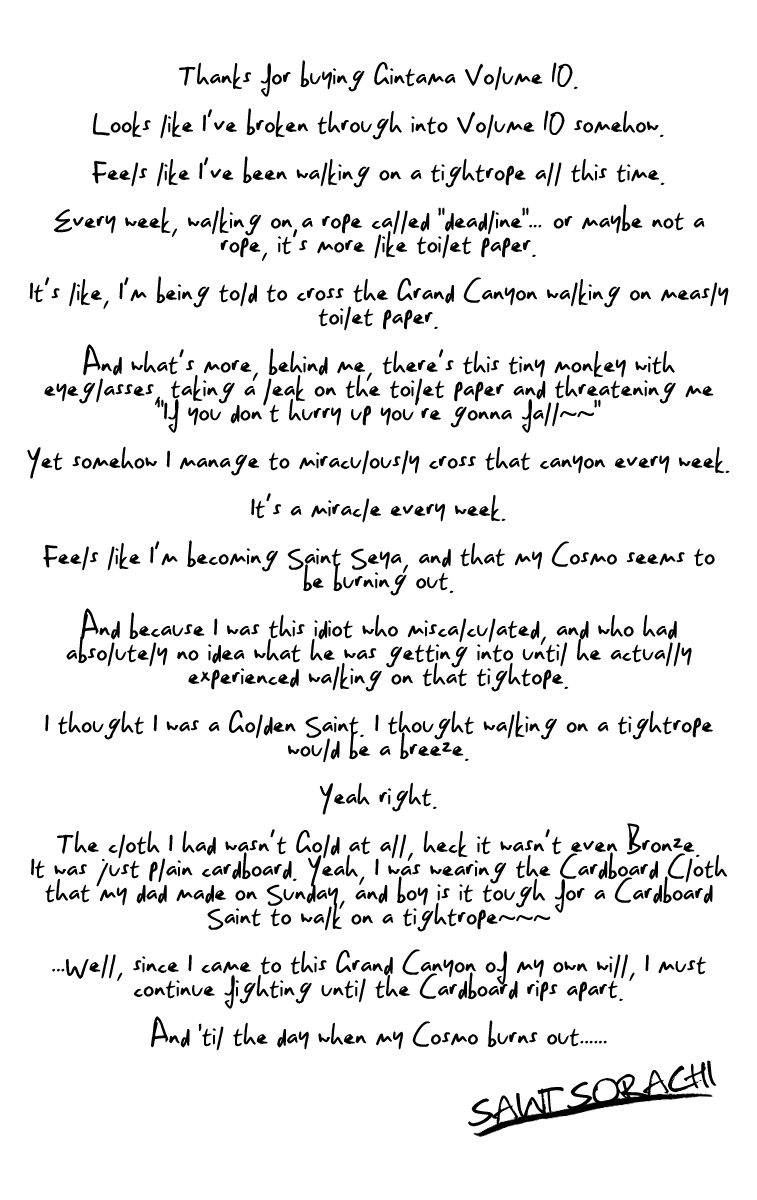 Thanks for buying Gintama Volume 10.
Looks like I've broken through into Volume 10 somehow.
Feels like I've been walking on a tightrope all this time.
Every week, walking on a rope called "deadline"... or maybe not a
rope, it's more like toilet paper.
It's like, I'm being told to cross the Grand Canyon walking on measly
toilet paper.
And what's more, behind me, there's this tiny monkey with
eyeglasses, taking a leak on the toilet paper and threatening me
"If you don't hurry up you're gonna fall~~"
Yet somehow I manage to miraculously cross that canyon every week.
It's a miracle every week.
Feels like I'm becoming Saint Seya, and that my Cosmo seems to
be burning out.
And because I was this idiot who miscalculated, and who had
absolutely no idea what he was getting into until he actually
experienced walking on that tightope.
I thought I was a Golden Saint. I thought walking on a tightrope
would be a breeze.
Yeah right.
The cloth I had wasn't Gold at all, heck it wasn't even Bronze.
It was just plain cardboard. Yeah, I was wearing the Cardboard Cloth
that my dad made on Sunday, and boy is it tough for a Cardboard
Saint to walk on a tightrope~~~
...Well, since I came to this Grand Canyon of my own will, I must
continue fighting until the Cardboard rips apart.
And 'til the day when my Cosmo burns out......
SAINT SORACHI